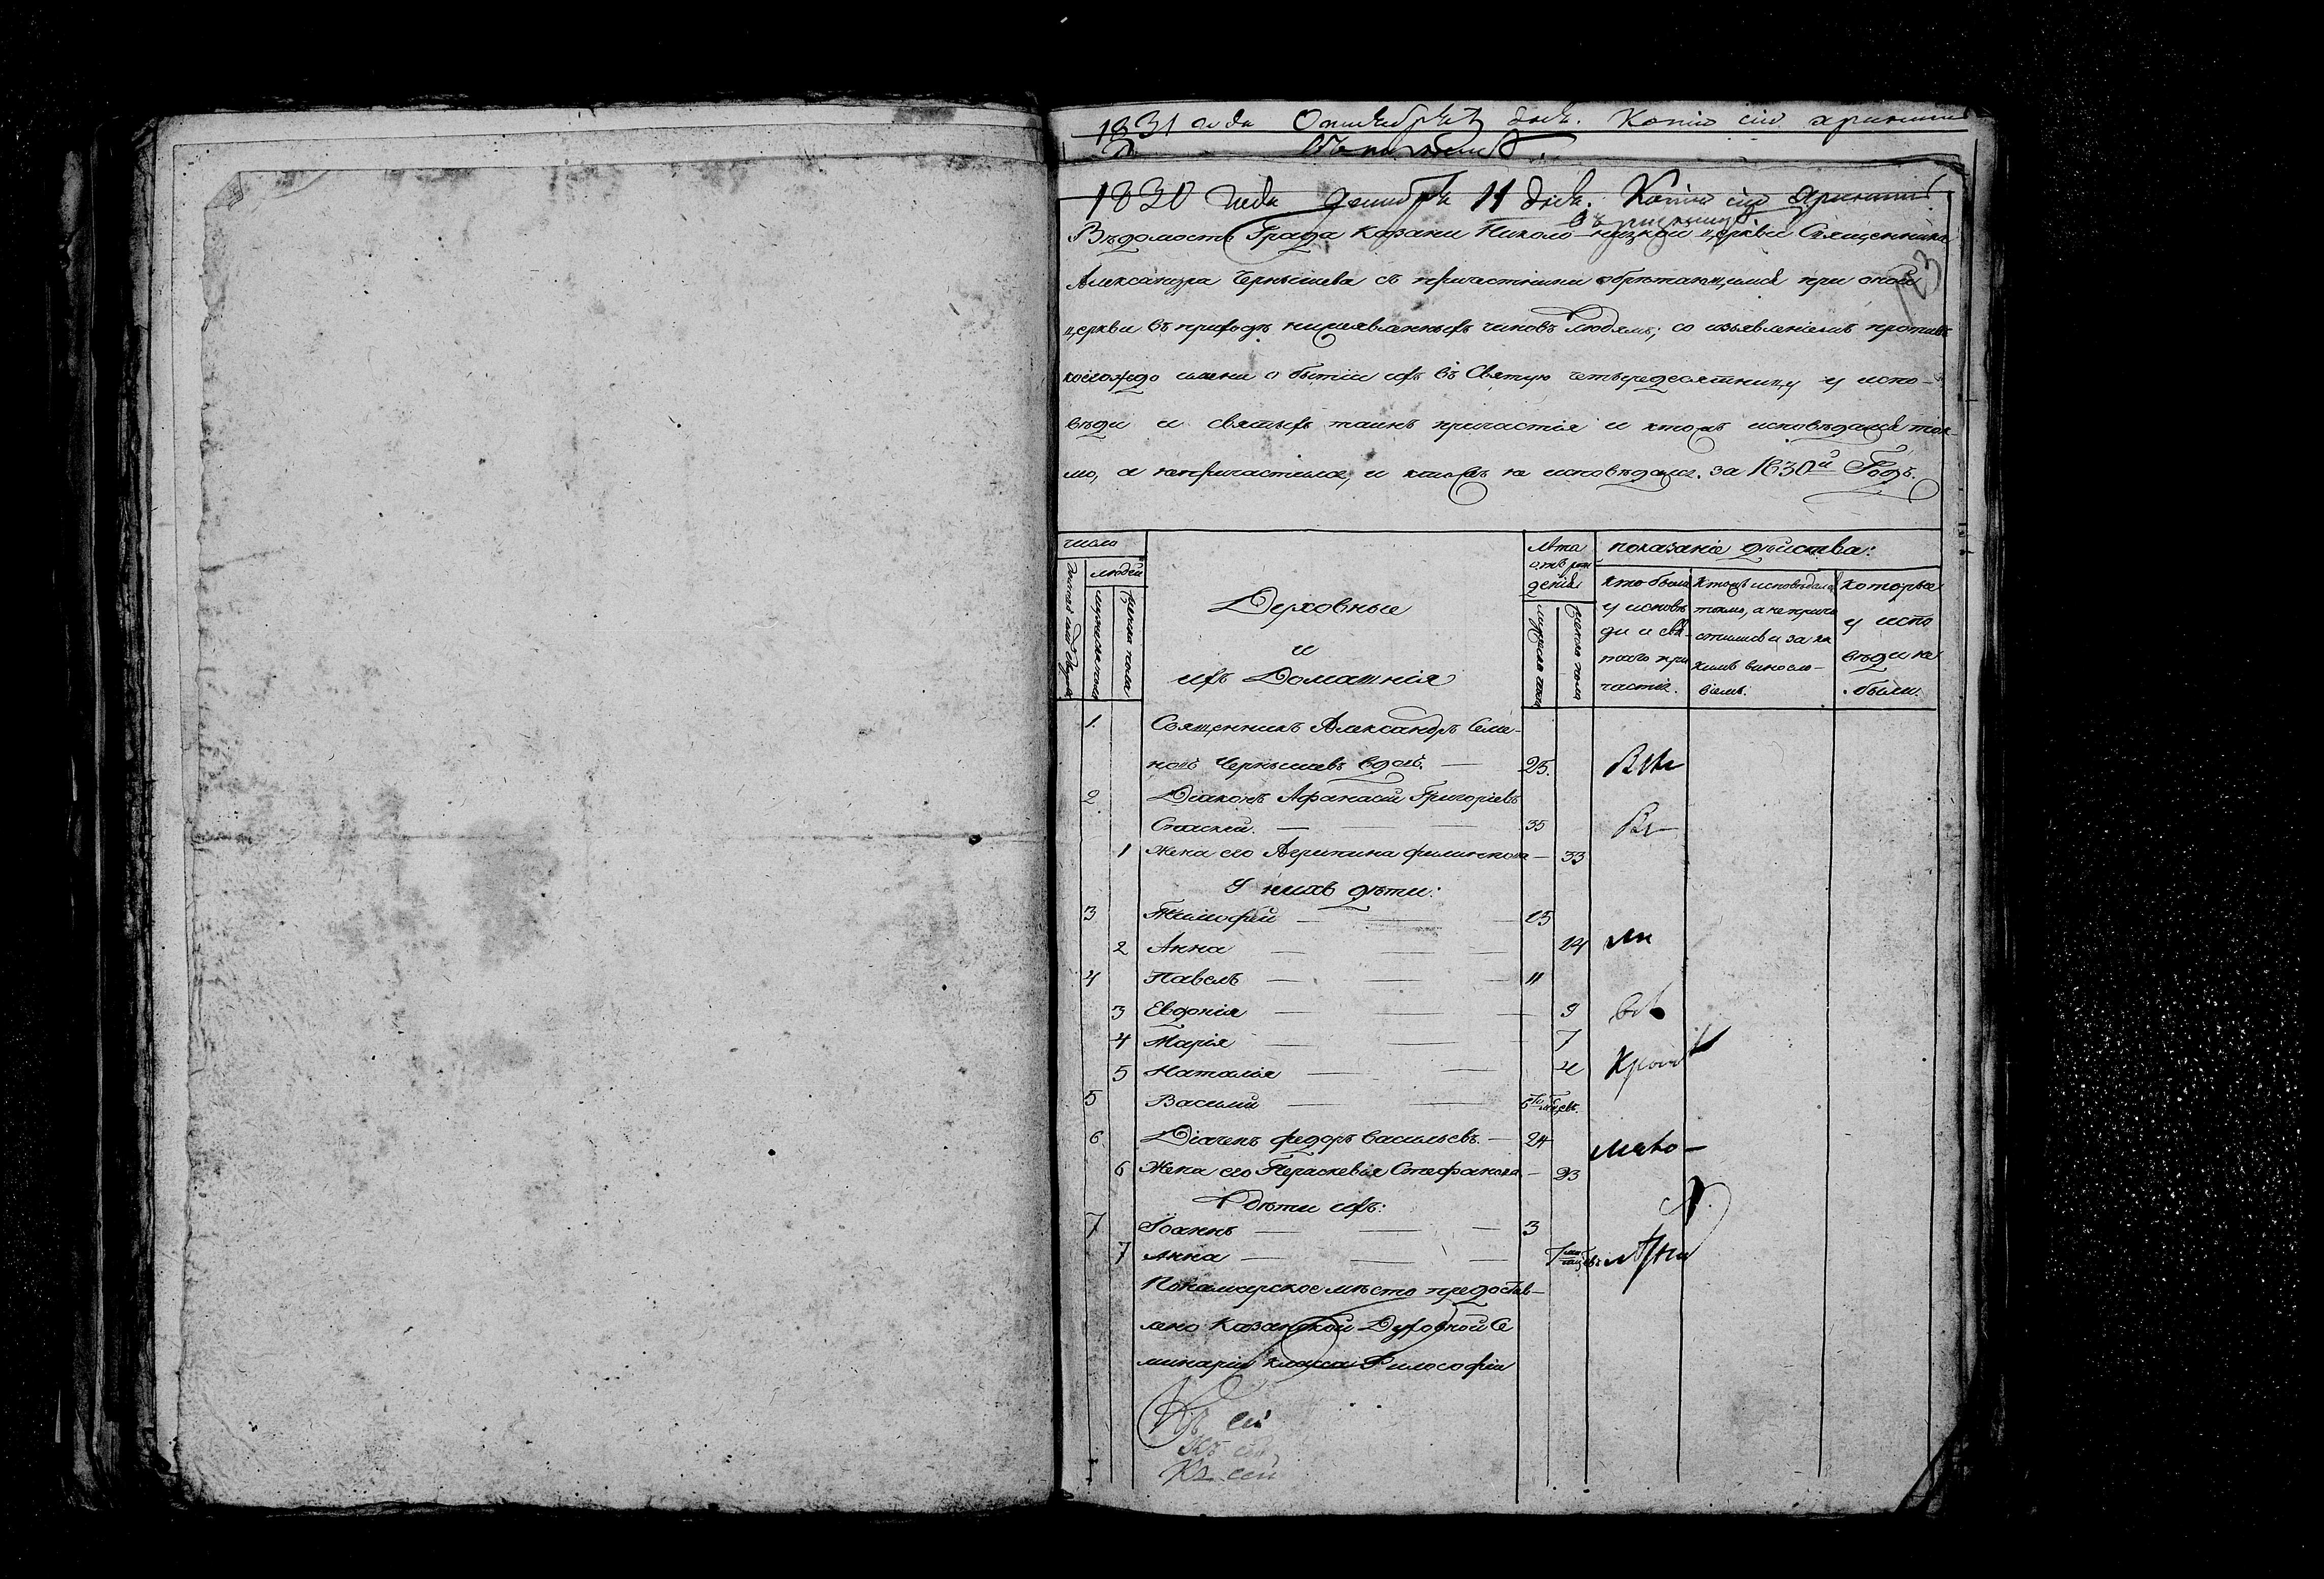 1831 года дня. Копію сію
1830 года Декабря 11 дня. Копію сію
Вѣдомость Града Казани Николо-низкой церкви Священника
Александра Чернышева съ причетники обрѣтающимся при оной
церкви въ приходѣ нижеявленныхъ чиновъ людямъ; со изъявленіемъ противъ
коегождо имени о бытіи ихъ въ Святую четыредесятницу у испо-
вѣди и святыхъ таинъ причастія и ктожъ исповѣдался ток-
мо, а непричастился, и ктожъ не исповѣдался. за 1830й Годъ.
число
людей
мужеска пола
женска пола
Духовные
и
ихъ Домашнія
лѣта
отъ рож
денія
мужеска пола
женска пола
показаніе дѣйства:
кто были
у исповѣ
ди и свя-
таго при
частія.
Ктожъ исповѣдался
токмо, а не прича
стился и за ка
кимъ винословіемъ.
которые
у испо
вѣди не
были.
1. Священникъ Александръ Семе-
новъ Чернышевъ вдовъ. — 25.
2 Діаконъ Афанасій Григорьевъ
Спаскій. — 35
1 Жена его Агрипина Филипова — 33
У нихъ дѣти:
3 Тимофей — 15
2 Анна — 14
4 Павелъ — 11
3 Евдокія — 9
4 Марія — 7
5 Наталія — 4
5 Василій — мѣсяцевъ.
6 Діячекъ Федоръ Васильевъ. — 24
6 Жена его Параскевія Стефанова — 23
дѣти ихъ:
7 Іоаннъ — 3
7 Анна —
Пономарское мѣсто предостав-
лено Казанской Духовной Се
минаріи класса Философіи
Къ сей
Къ сей
Къ сей